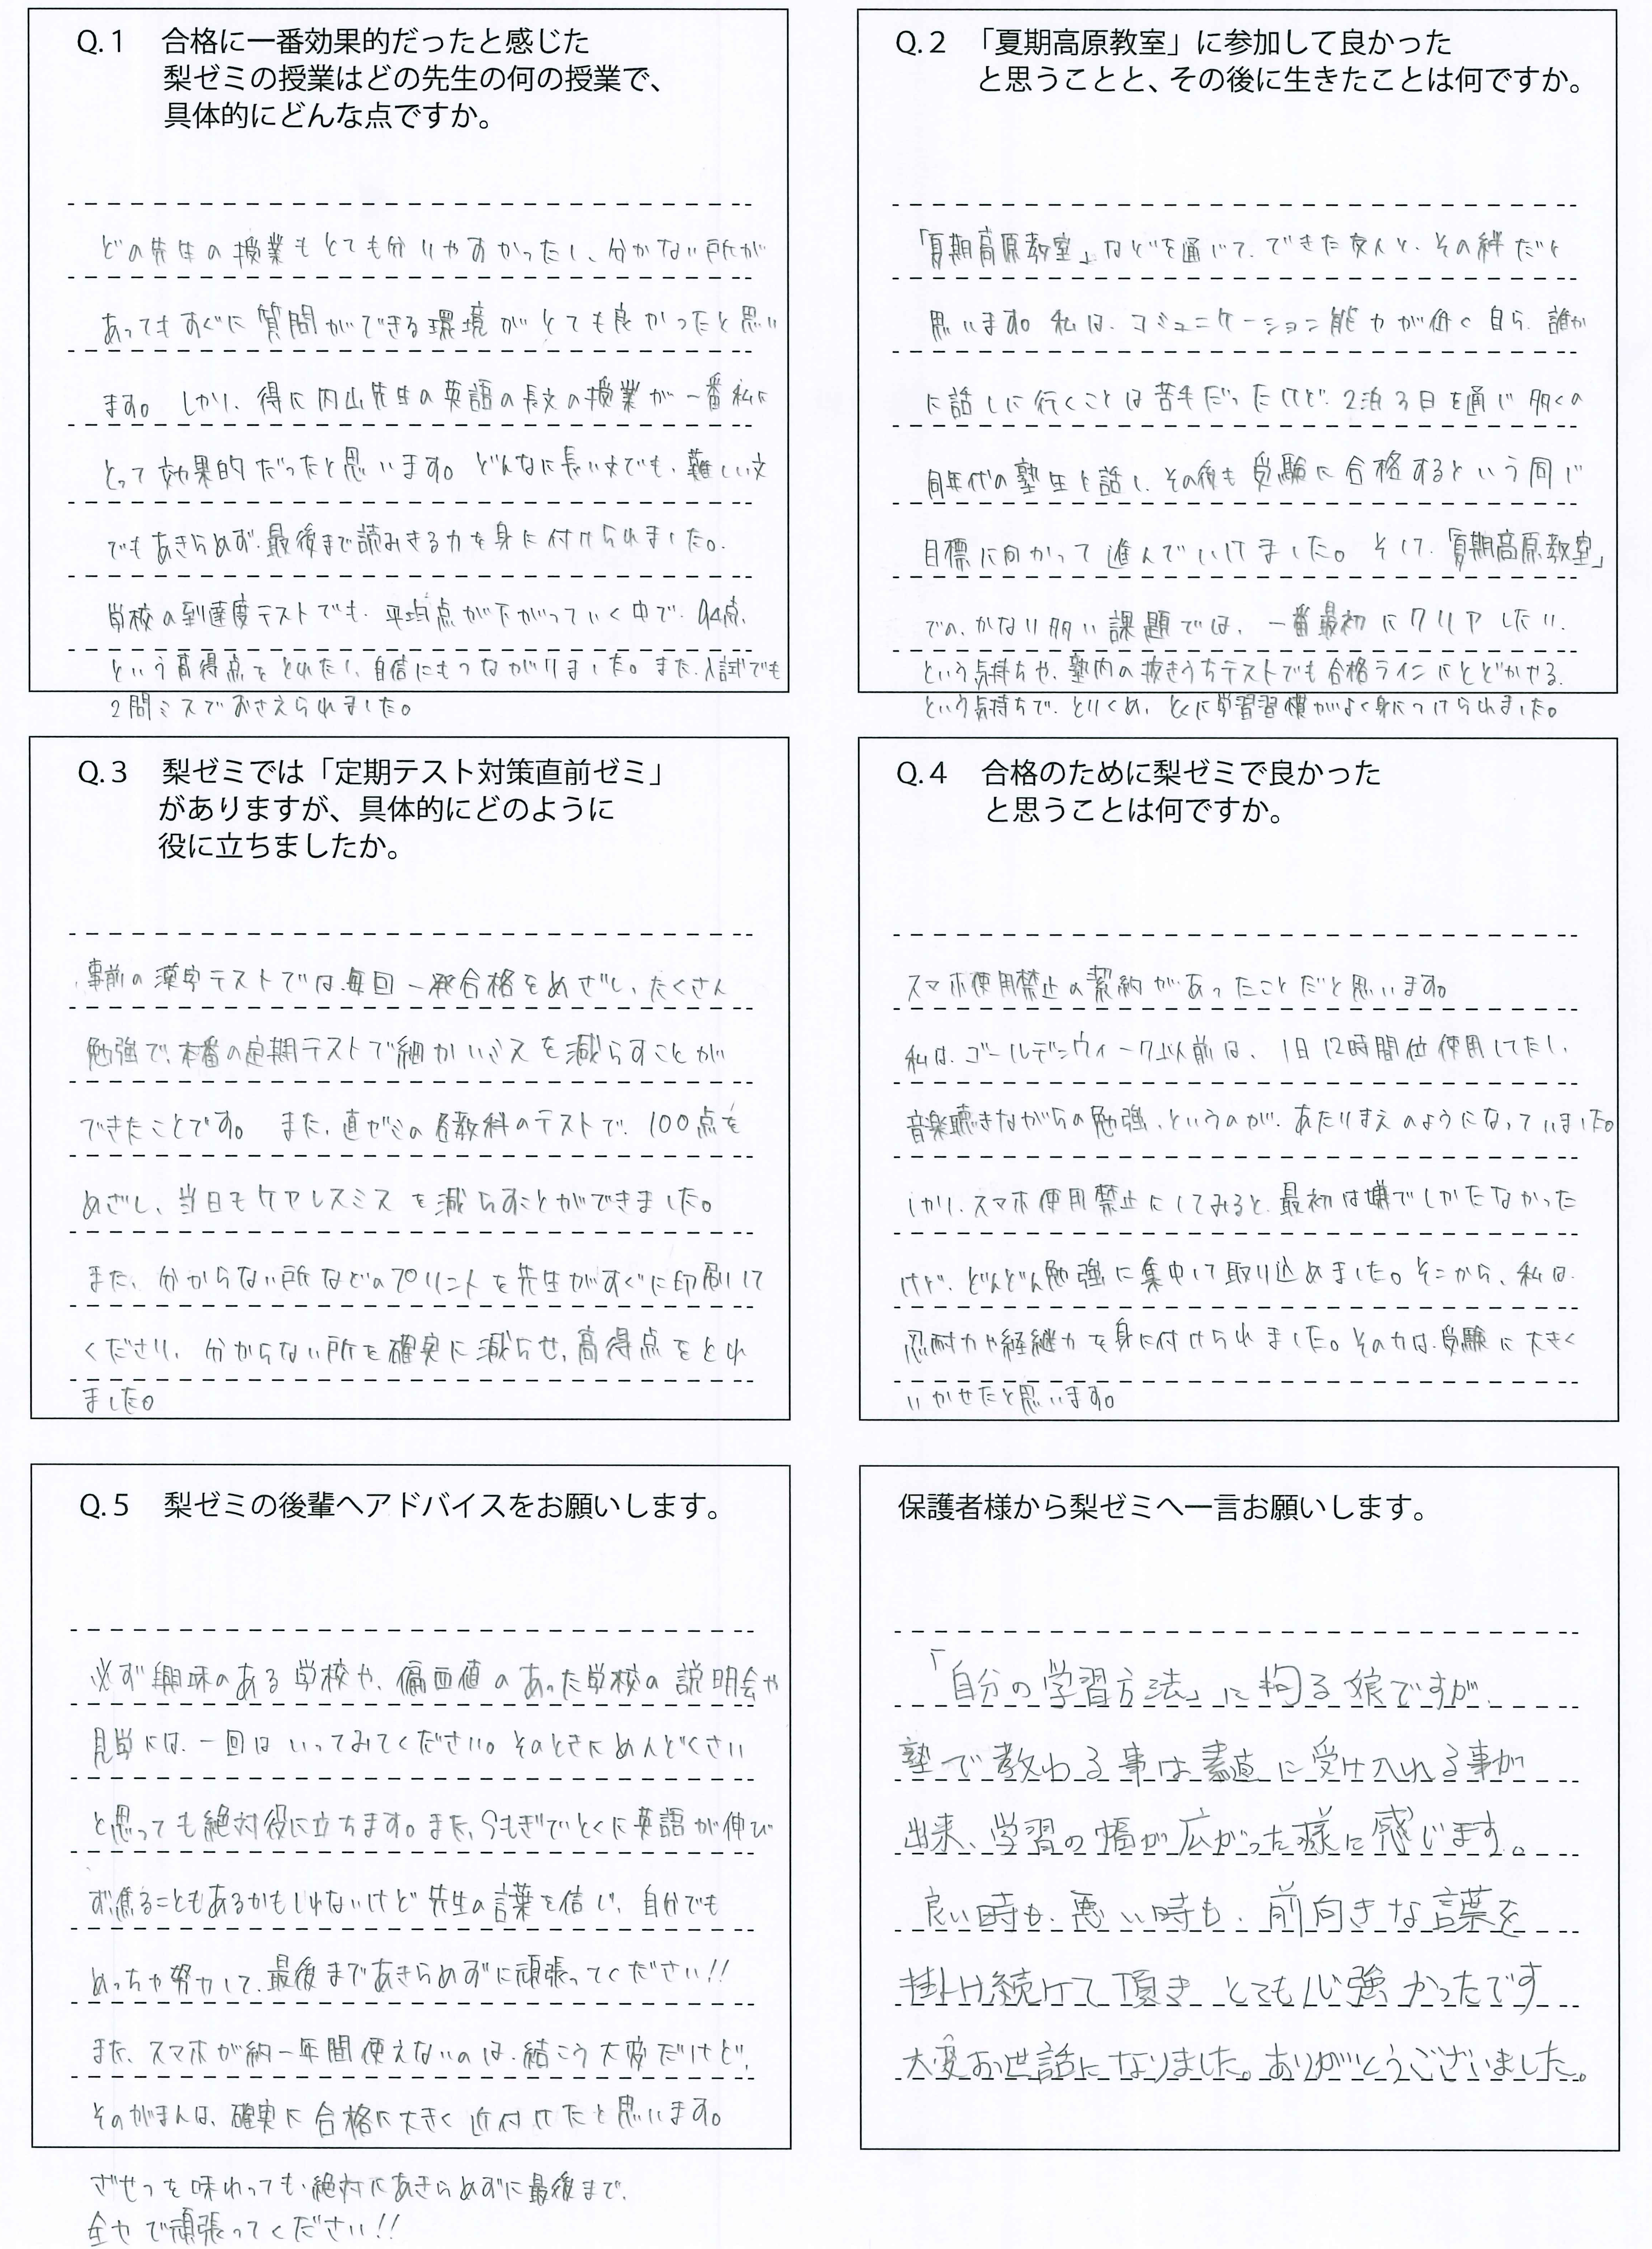 Q.1 合格に一番効果的だったと感じた
梨ゼミの授業はどの先生の何の授業で、
具体的にどんな点ですか。
どの先生の授業もとても分りやすかったし、分かない所が
あってもすぐに質問ができる環境がとても良かったと思い
ます。しかし、得に内山先生の英語の長文の授業が一番私に
とって効果的だったと思います。どんなに長い文でも、難しい文
でもあきらめず、最後まで読みきる力を身に付けられました。
学校の到達度テストでも、平均点が下がっていく中で、94点、
という高得点をとれたし、自信にもつながりました。また、入試でも
2問ミスでおさえられました。
Q.2 「夏期高原教室」に参加して良かった
と思うことと、その後に生きたことは何ですか。
「夏期高原教室」などを通じて、できた友人と、その絆だと
思います。私は、コミュニケーション能力が低く自ら、誰か
に話しに行くことは苦手だったけど、2泊3日を通じ多くの
同年代の塾生と話し、その後も受験に合格するという同じ
目標に向かって進んでいけました。そして、「夏期高原教室」
での、かなり多い課題では、一番最初にクリアしたい、
という気持ちや、塾内の抜きうちテストでも合格ラインにとどかせる、
という気持ちで、とりくめ、とくに学習習慣がよく身につけられました。
Q.3 梨ゼミでは「定期テスト対策直前ゼミ」
がありますが、具体的にどのように
役に立ちましたか。
事前の漢字テストでは、毎回一発合格をめざし、たくさん
勉強で、本番の定期テストで細かいミスを減らすことが
できたことです。また、直ゼミの各教科のテストで、100点を
めざし、当日もケアレスミスを減らすことができました。
また、分からない所などのプリントを先生がすぐに印刷して
くださり、分からない所を確実に減らせ、高得点をとれ
ました。
Q.4 合格のために梨ゼミで良かった
と思うことは何ですか。
スマホ使用禁止の契約があったことだと思います。
私は、ゴールデンウィーク以前は、1日12時間位使用してたし、
音楽聴きながらの勉強、というのが、あたりまえのようになっていました。
しかし、スマホ使用禁止にしてみると、最初は嫌でしかたなかった
けど、どんどん勉強に集中して取り込めました。そこから、私は、
忍耐力や経継力を身に付けられました。その力は、受験に大きく
いかせたと思います。
Q.5 梨ゼミの後輩へアドバイスをお願いします。
必ず興味のある学校や、偏西値のあった学校の説明会や
見学には、一回はいってみてください。そのときにめんどくさい
と思っても絶対役に立ちます。また、Sもぎでとくに英語が伸び
ず焦ることもあるかもしれないけど先生の言葉を信じ、自分でも
めっちゃ努力して、最後まであきらめずに頑張ってください!!
また、スマホが約一年間使えないのは、結こう大変だけど、
そのがまんは、確実に合格に大きく近付けたと思います。
ざせつを味わっても、絶対にあきらめずに最後まで、
全力で頑張ってください!!
保護者様から梨ゼミへ一言お願いします。
「自分の学習方法」に拘る娘ですが、
塾で教わる事は素直に受け入れる事が
出来、学習の幅が広がった様に感じます。
良い時も、悪い時も、前向きな言葉を
掛け続けて頂き とても心強かったです
大変お世話になりました。ありがとうございました。